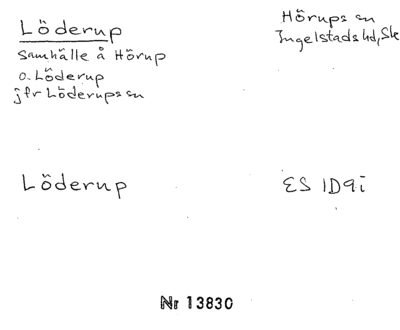 Löderup
samhälle å Hörup
o. Löderup
jfr Löderups sn
Hörups sn
Ingelstads hd, Sk
Löderup
ES 1D9i
Nr 13830